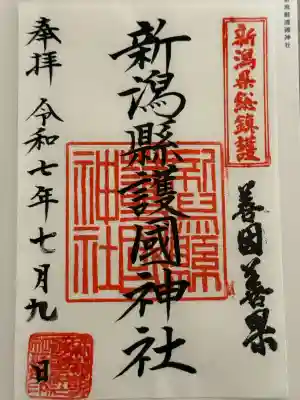 新潟縣護國神社
新潟県総鎮護
善因善果
新潟縣護國神社
奉拝 令和七年七月九日